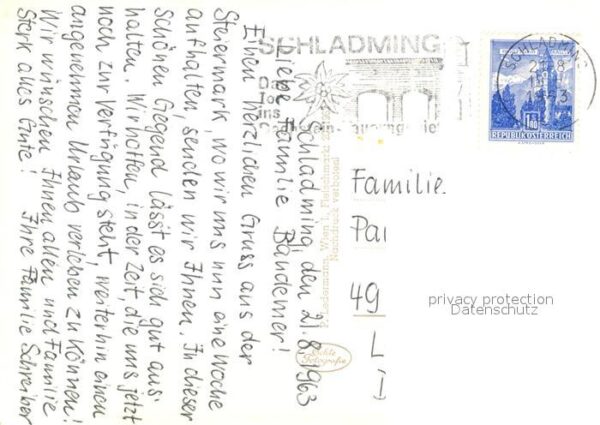 Schladming, den 21.8.1963
Liebe Familie Bandemer!
Einen herzlichen Gruss aus der
Steiermark, wo wir uns nun eine Woche
aufhalten, senden wir Ihnen. In dieser
schönen Gegend lässt es sich gut aus-
halten. Wir hoffen, in der Zeit, die uns jetzt
noch zur Verfügung steht, weiterhin einen
angenehmen Urlaub verleben zu können!
Wir wünschen Ihnen allen und Familie
Sterk alles Gute! Ihre Familie Schreiber
SCHLADMING
Das
Tor
ins
SCHLADMING
21.8
1963
1.80
REPUBLIK ÖSTERREICH
P. Ledermann, Wien I, Fleischmarkt
Nachdruck verboten!
Echte
Fotografie
Familie
Pa
49
L
privacy protection
Datenschutz